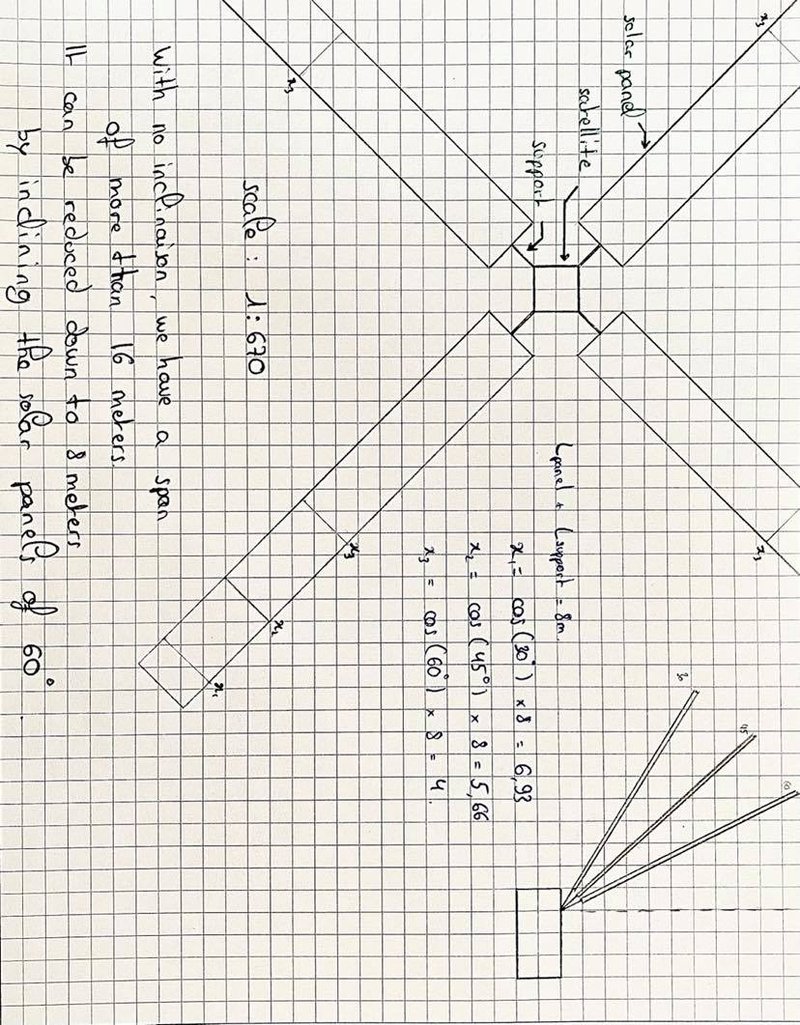 x₃
solar panel
satellite
support
x₃
scale : 1:670
With no inclinaison, we have a span
of more than 16 meters.
It can be reduced down to 8 meters
by inclining the solar panels of 60°.
L panel + L support = 8m.
x₁ = cos(30°) x 8 = 6,93
x₂ = cos(45°) x 8 = 5,66
x₃ = cos(60°) x 8 = 4.
x₃
x₃
x₂
x₁
30
45
60